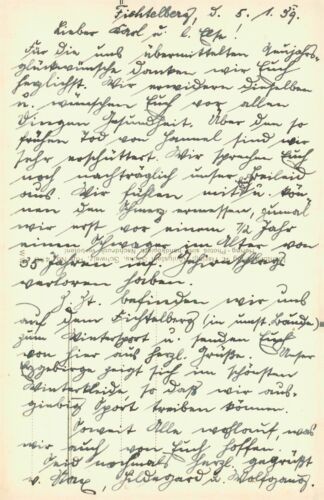 Fichtelberg, d. 5. 1. 59.
Lieber Karl u. l. Else!
Für die uns übermittelten Neujahrs-
glückwünsche danken wir Euch
herzlichst. Wir erwidern dieselben
u. wünschen Euch vor allen
Dingen Gesundheit. Über den so
frühen Tod von Hannel sind wir
sehr erschüttert. Wir sprechen Euch
noch nachträglich unser Beileid
aus. Wir fühlen mit u. kön-
nen den Schmerz ermessen, zumal
wir erst vor einem ½ Jahr
einen Schwager im Alter von
35 Jahren auf
verloren haben.
Z. Zt. befinden wir uns
auf dem Fichtelberg (in umst. Baude)
zum Wintersport u. senden Euch
von hier aus herzl. Grüße. Unser
Erzgebirge zeigt sich im schönsten
Winterkleide, so daß wir aus-
giebig Sport treiben können.
Soweit Alle wohlauf, was
wir auch von Euch hoffen.
Seid nochmals herzl. gegrüßt
v. Max, Hildegard u. Wolfgang.